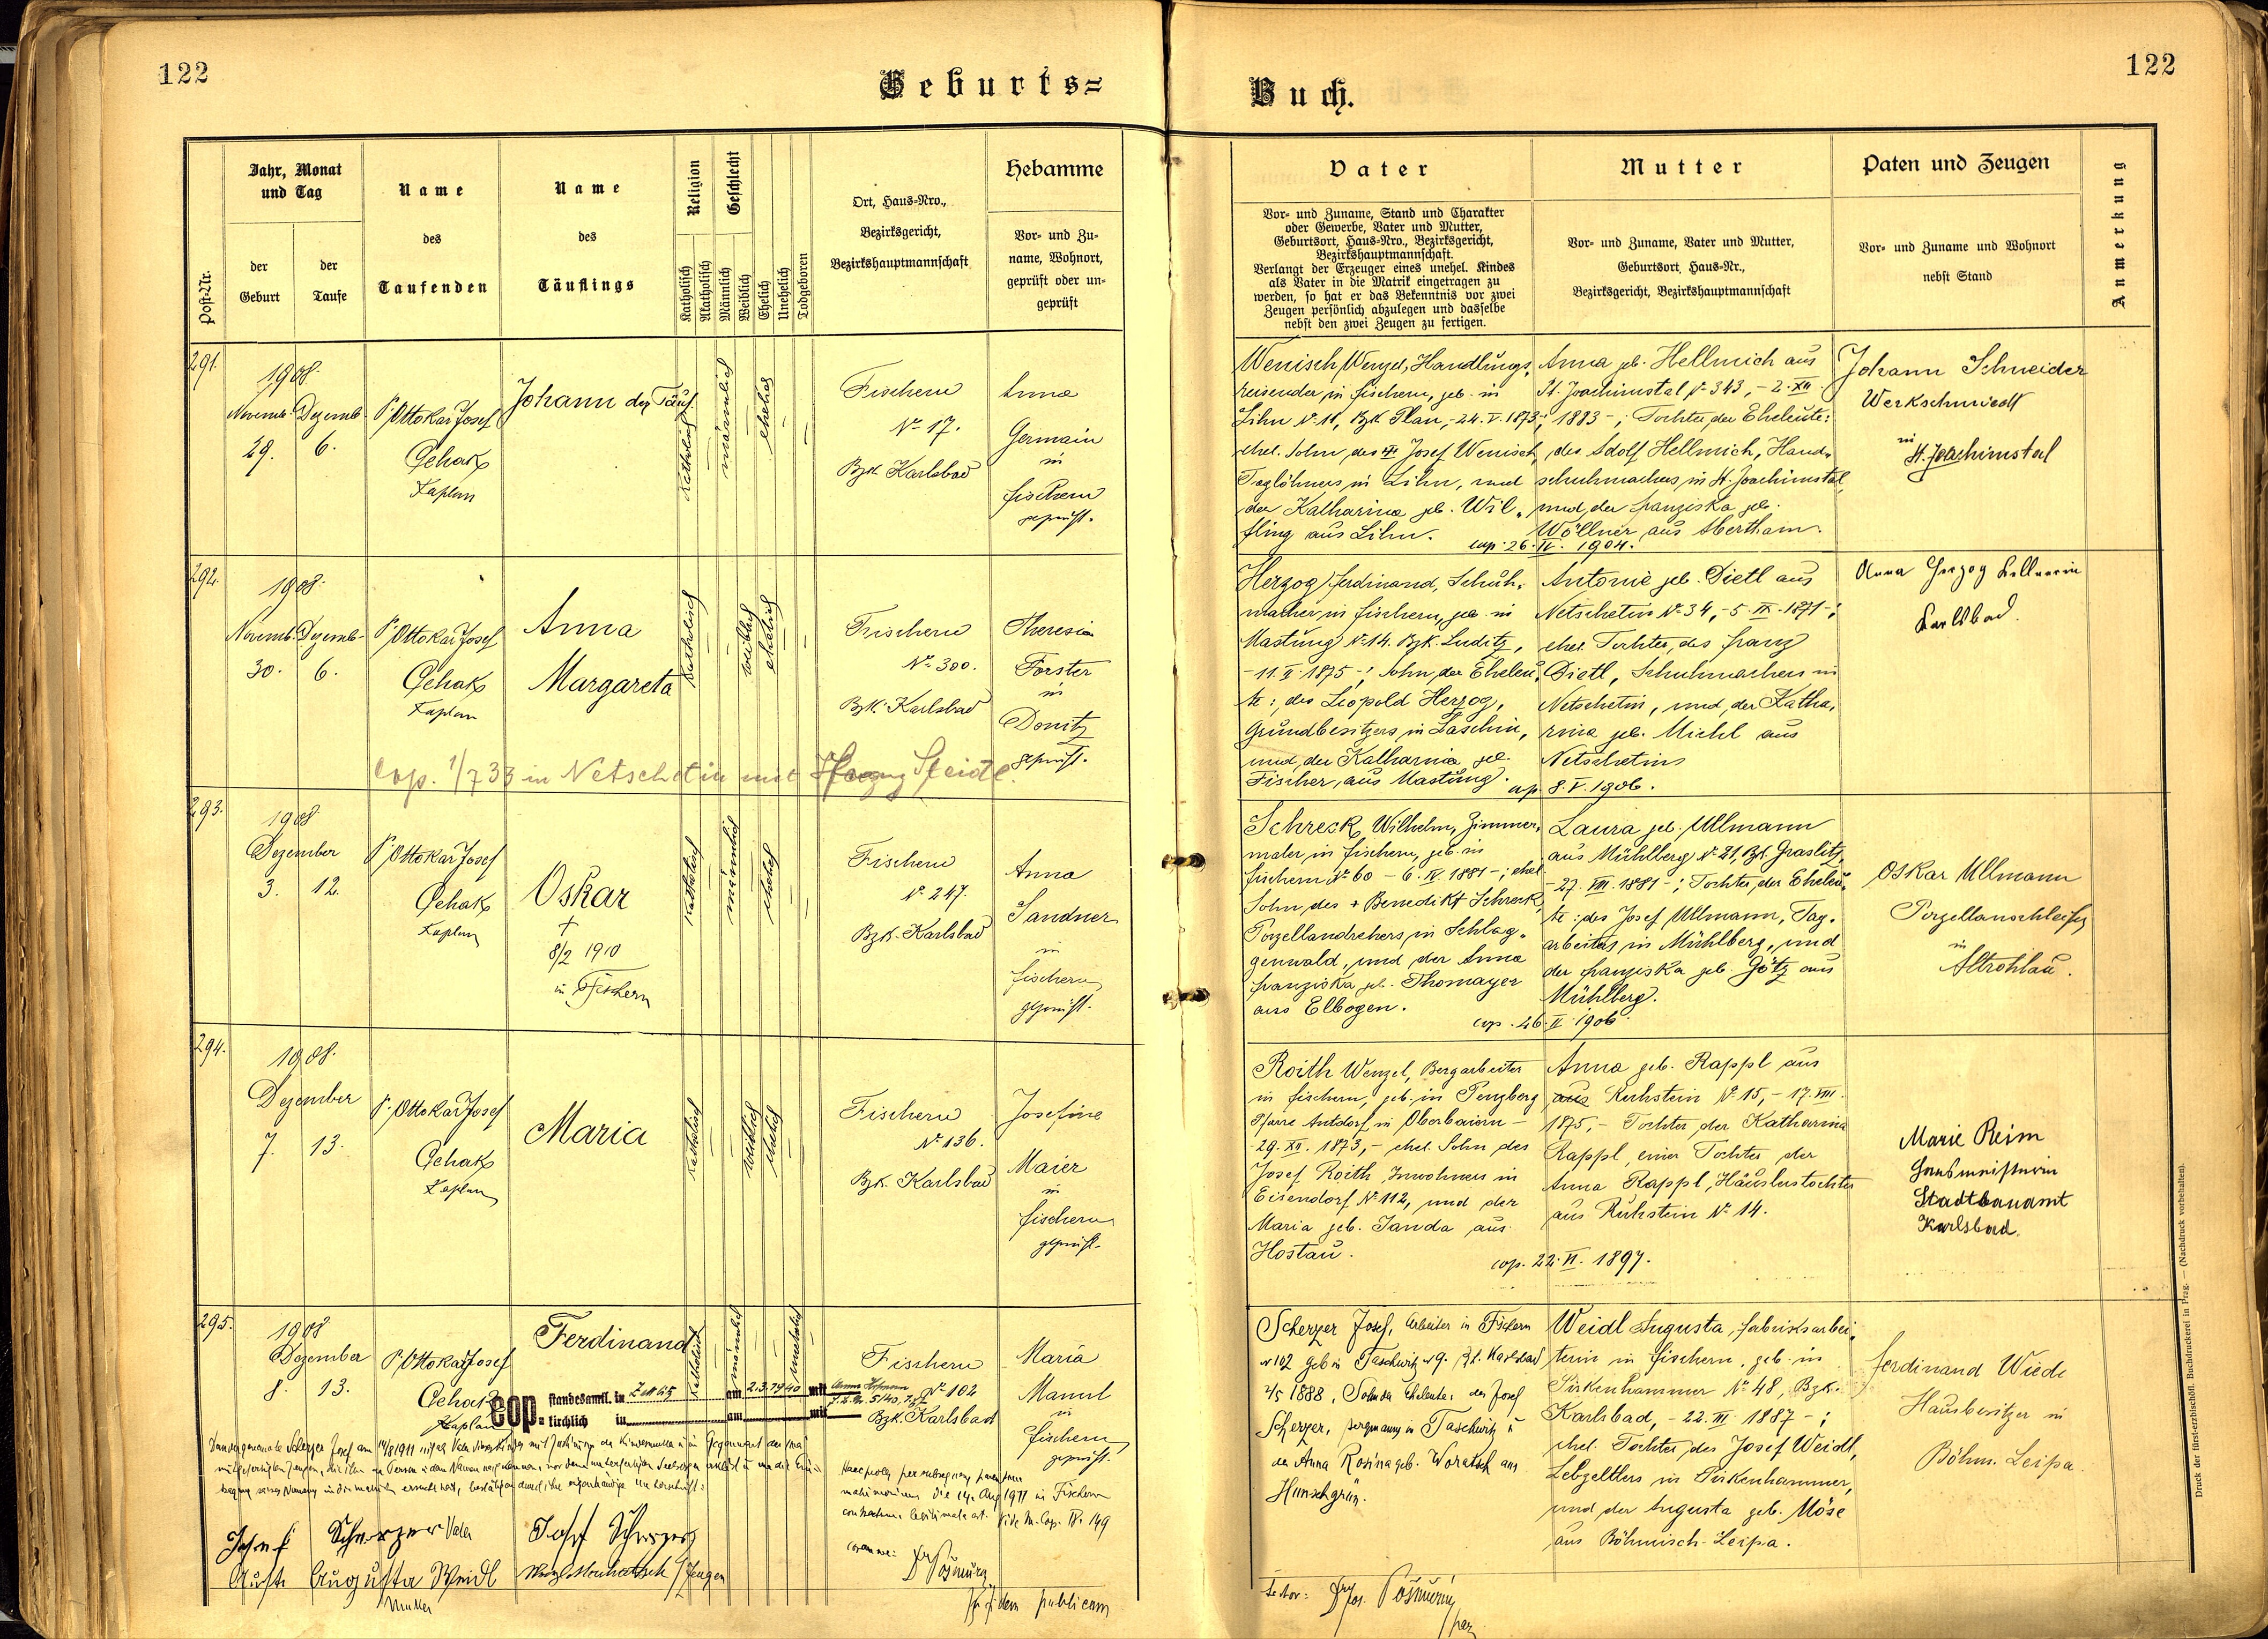 122
Geburts=
Buch.
122
Post-Nr.
Jahr, Monat
und Tag
der
Geburt
der
Taufe
Name
des
Taufenden
Name
des
Täuflings
Religion
Katholisch
Akatholisch
Geschlecht
Männlich
Weiblich
Ehelich
Unehelich
Todgeboren
Ort, Haus-Nro.,
Bezirksgericht,
Bezirkshauptmannschaft
Hebamme
Vor- und Zu-
name, Wohnort,
geprüft oder un-
geprüft
Vater
Vor- und Zuname, Stand und Charakter
oder Gewerbe, Vater und Mutter,
Geburtsort, Haus-Nro., Bezirksgericht,
Bezirkshauptmannschaft.
Verlangt der Erzeuger eines unehel. Kindes
als Vater in die Matrik eingetragen zu
werden, so hat er das Bekenntnis vor zwei
Zeugen persönlich abzulegen und dasselbe
nebst den zwei Zeugen zu fertigen.
Mutter
Vor- und Zuname, Vater und Mutter,
Geburtsort, Haus-Nr.,
Bezirksgericht, Bezirkshauptmannschaft
Paten und Zeugen
Vor- und Zuname und Wohnort
nebst Stand
Anmerkung
291.
1908.
Novemb.
29.
Dezemb.
6.
P. Ottokar Josef
Čehak
Kaplan
Johann der Täuf.
katholisch
männlich
ehelich
Fischern
No 17.
Bzk. Karlsbad
Anna
Germain
in
Fischern
geprüft.
Wenisch Wenzel, Handlungs-
reisender in Fischern, geb. in
Lihn No 11, Bzk. Plan, - 24. V. 1873 -;
ehel. Sohn des Josef Wenisch,
Taglöhners in Lihn, und
der Katharina geb. Wil-
fling aus Lihn.
Anna geb. Hellmich aus
St. Joachimstal No 343, - 2. XII.
1883 -; Tochter der Eheleute:
des Adolf Hellmich, Hand-
schuhmachers in St. Joachimstal,
und der Franziska geb.
Wöllner aus Abertham.
cop. 26. IV. 1904.
Johann Schneider
Werkschmiedt
in
St. Joachimstal
292.
1908.
Novemb.
30.
Dezemb.
6.
P. Ottokar Josef
Čehak
Kaplan
Anna
Margareta
katholisch
weiblich
ehelich
Fischern
No 300.
Bzk. Karlsbad
Theresia
Forster
in
Donitz
geprüft.
cop. 1/7 33 in Netschetin mit Steidl.
Herzog Ferdinand, Schuh-
macher in Fischern, geb. in
Mastung No 14. Bzk. Luditz,
- 11. X. 1875 -; Sohn der Eheleu-
te: des Leopold Herzog,
Grundbesitzers in Laschin,
und der Katharina geb.
Fischer, aus Mastung.
Antonie geb. Dietl aus
Netschetin No 34, - 5. IX. 1871 -;
ehel. Tochter des Franz
Dietl, Schuhmachers in
Netschetin, und der Katha-
rina geb. Michl aus
Netschetin
cop. 8. V. 1906.
Anna Herzog Kellnerin
Karlsbad.
293.
1908
Dezember
3.
12.
P. Ottokar Josef
Čehak
Kaplan
Oskar
†
8/2 1910
in Fischern
katholisch
männlich
ehelich
Fischern
No 247.
Bzk. Karlsbad
Anna
Sandner
in
Fischern
geprüft.
Schreck Wilhelm, Zimmer-
maler in Fischern, geb. in
Fischern No 60 - 6. IV. 1881 -; ehel.
Sohn des + Benedikt Schreck,
Porzellandrehers in Schlag-
genwald, und der Anna
Franziska geb. Thomayer
aus Elbogen.
Laura geb. Ullmann
aus Mühlberg No 21, Bzk. Graslitz,
- 27. VIII. 1881 -; Tochter der Eheleu-
te: des Josef Ullmann, Tag-
arbeiters in Mühlberg, und
der Franziska geb. Götz aus
Mühlberg.
cop. 26. II. 1906.
Oskar Ullmann
Porzellanschleifer
in
Altrohlau.
294.
1908.
Dezember
7.
13.
P. Ottokar Josef
Čehak
Kaplan
Maria
katholisch
weiblich
ehelich
Fischern
No 136.
Bzk. Karlsbad
Josefine
Maier
in
Fischern
geprüft.
Roith Wenzel, Bergarbeiter
in Fischern, geb. in Penzberg
Pfarre Antdorf in Oberbaiern -
- 29. XII. 1873, - ehel. Sohn des
Josef Roith, Inwohners in
Eisendorf No 112, und der
Maria geb. Janda aus
Hostau.
Anna geb. Rappl aus
aus Ruhstein No 15, - 17. VIII.
1875, - Tochter der Katharina
Rappl, einer Tochter der
Anna Rappl, Häuslerstochter
aus Ruhstein No 14.
cop. 22. VI. 1897.
Marie Reim
Hausmeisterin
Stadtbauamt
Karlsbad.
295.
1908
Dezember
8.
13.
P. Ottokar Josef
Čehak
Kaplan
Ferdinand
katholisch
männlich
unehelich
Fischern
No 102
Bzk. Karlsbad
Maria
Mannl
in
Fischern
geprüft.
cop. standesamtl. in Zettlitz am 2.3.1940 mit Anna Hofmann
kirchlich in am mit
Scherzer Josef, Arbeiter in Fischern
No 102 geb. in Taschwitz No 9. Bzk. Karlsbad
1888, Sohn der Eheleute: des Josef
Scherzer, Bergmann in Taschwitz u
der Anna Rosina geb. Woratsch aus
Hunschgrün.
Weidl Augusta, Fabriksarbei-
terin in Fischern, geb. in
Pirkenhammer No 48, Bzk.
Karlsbad, - 22. III. 1887 -;
ehel. Tochter des Josef Weidl,
Lebzelters in Pirkenhammer,
und der Augusta geb. Möse
aus Böhmisch-Leipa.
Ferdinand Wiede
Hausbesitzer in
Böhm. Leipa.
Josef Scherzer Vater
Augusta Weidl
Mutter
Josef Scherzer
Zeugen
matrimonium die 14. Aug 1911 in Fischern
vide M. Cop. IV. 149
coram me:
Pošmurny
ad fidem publicam
Testor: Jos. Pošmurny
Druck der fürst-erzbischöfl. Buchdruckerei in Prag. — (Nachdruck vorbehalten).